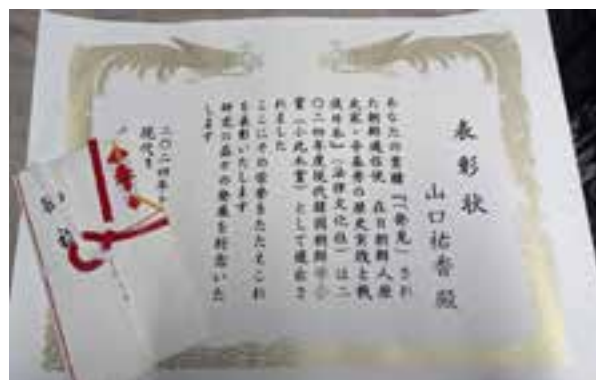 表彰状
山口祐香 殿
あなたの業績『「発見」され
た朝鮮通信使 在日朝鮮人歴
史家・辛基秀の歴史実践と戦
後日本』(法律文化社)は二
〇二四年度現代韓国朝鮮学会
賞(小此木賞)として選出さ
れました
ここにその栄誉をたたえこれ
を表彰いたします
研究の益々の発展を祈念いた
します
二〇二四年
現代